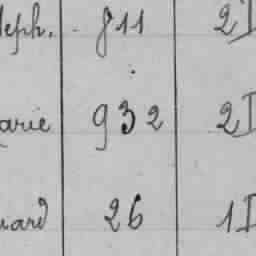 eph. 811 2I
arie 932 2I
uard 26 1I